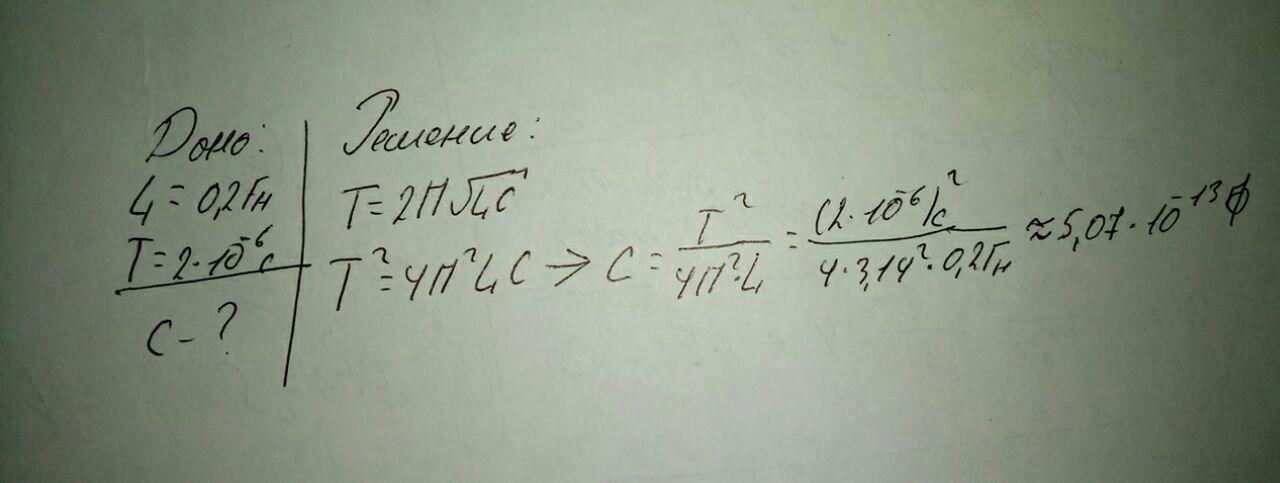 Дано:
L = 0,2 Гн
T = 2·10⁻⁶ с
C - ?
Решение:
T = 2П√LC
T² = 4П²LC → C = T² / 4П²·L = (2·10⁻⁶)² с / 4·3,14²·0,2 Гн ≈ 5,07·10⁻¹³ Ф